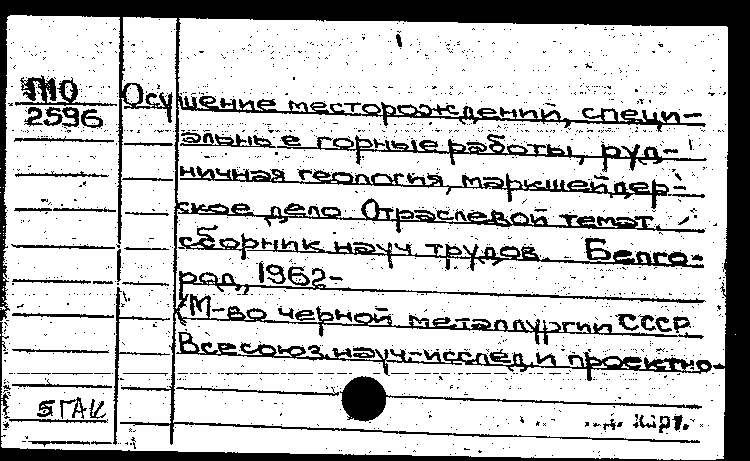 П10
2596
Осушение месторождений, специ-
альные горные работы, руд-
ничная геология, маркшейдер-
ское дело. Отраслевой темат.
сборник науч. трудов. Белго-
род, 1962-
(М-во черной металлургии СССР.
Всесоюз. науч.-исслед. и проектно-
БГАК